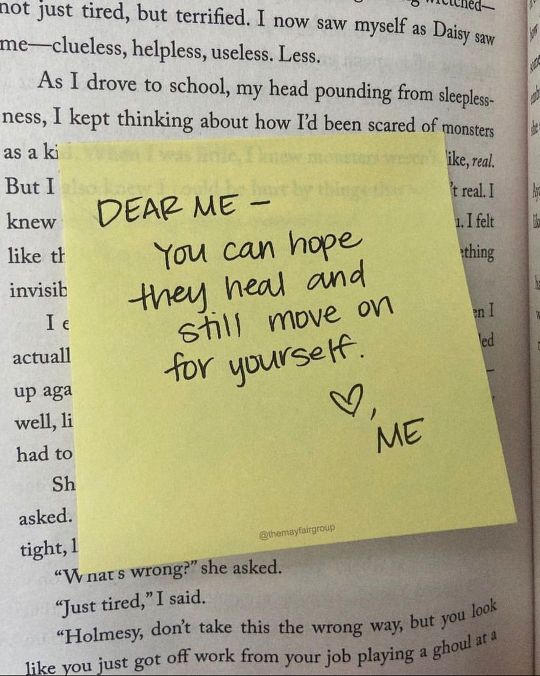 not just tired, but terrified. I now saw myself as Daisy saw
me—clueless, helpless, useless. Less.
As I drove to school, my head pounding from sleepless-
ness, I kept thinking about how I'd been scared of monsters
as a
like, real.
But I
't real. I
knew
I felt
like
invisib
DEAR ME –
You can hope
they heal and
still move on
for yourself.
♡,
ME
@themayfairgroup
I
actuall
up aga
well, li
had to
Sh
asked.
tight,
"What's wrong?" she asked.
"Just tired," I said.
"Holmesy, don't take this the wrong way, but you look
like you just got off work from your job playing a ghoul at a